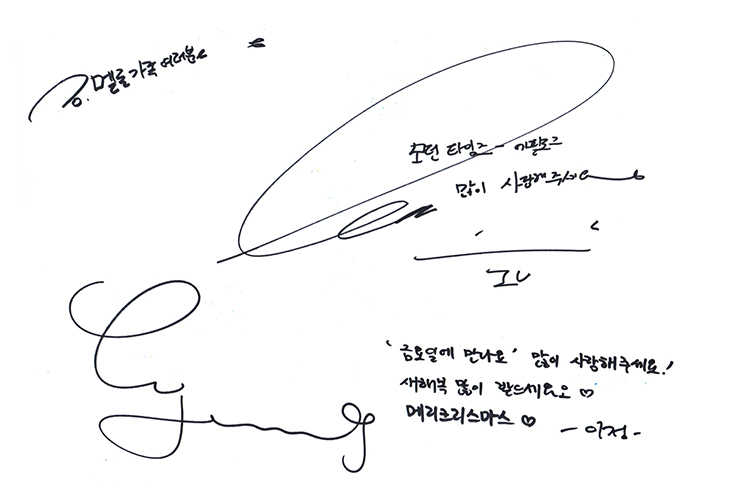 멜론가족 여러분
모던 타임즈 - 에필로그
많이 사랑해주세요
IU
'금요일에 만나요' 많이 사랑해주세요!
새해복 많이 받으세요오 ♡
메리크리스마스 ♡